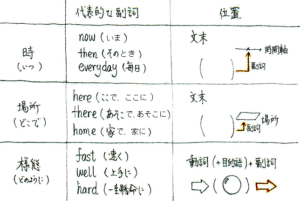 代表的な副詞 位置
時
(いつ)
now (いま)
then (そのとき)
everyday (毎日)
文末
時間軸
副詞
場所
(どこで)
here (ここで、ここに)
there (あそこで、あそこに)
home (家で、家に)
文末
場所
副詞
様態
(どのように)
fast (速く)
well (上手に)
hard (一生懸命に)
動詞 (+目的語) + 副詞